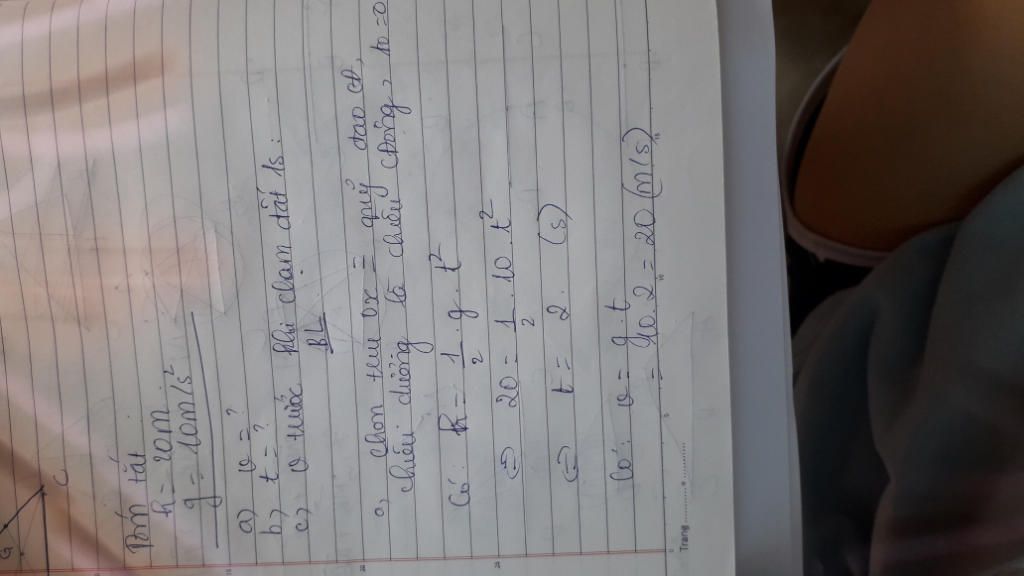 G
C
Tóm tắt
h = 20m
g = 10m/s²
a) v = ?
b, t = ?
c, v trước khi chạm đất 1s:
BL
a, Chọn trục ox ≡ quỹ đạo cđ,
chiều dương là chiều cđộng, to = 0
Có: h = 1/2 . g . t²
⇔ 20 = 1/2 . 10 . t²
⇔ t = 2 . (s)
Có: v = g . t
= 10 . 2 = 20 (m/s)
Trang